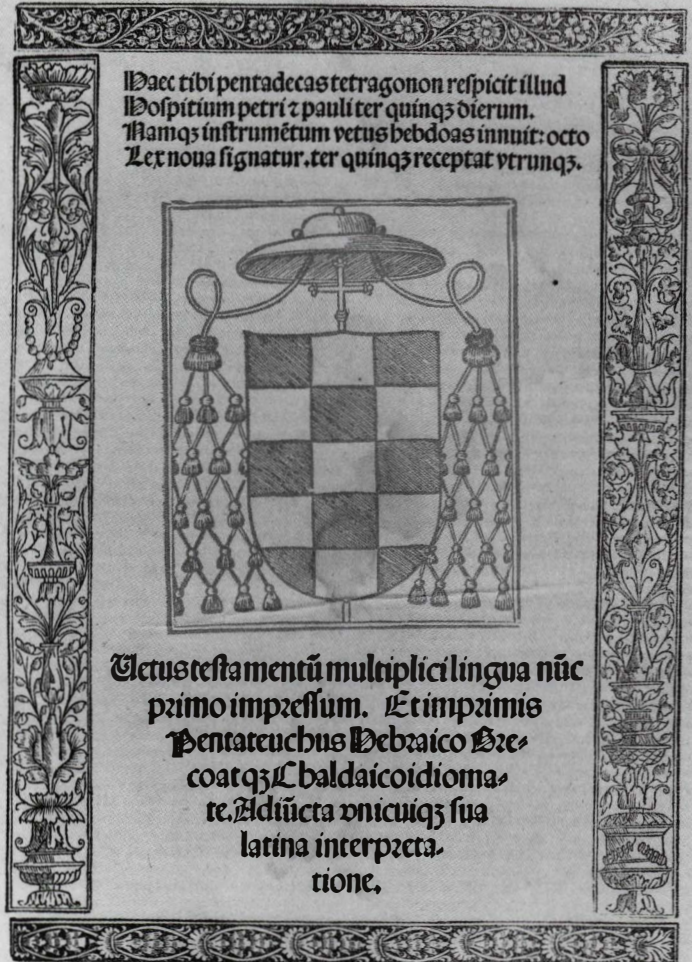 Haec tibi pentadecas tetragonon respicit illud
Hospitium petri ⁊ pauli ter quinqꝫ dierum.
Namqꝫ instrumẽtum vetus hebdoas innuit: octo
Lex noua signatur. ter quinqꝫ receptat vtrunqꝫ.
Uetus testamentũ multiplici lingua nũc
primo impressum. Et imprimis
Pentateuchus Hebraico Gre⸗
co atqꝫ Chaldaico idioma⸗
te. Adiũcta vnicuiqꝫ sua
latina interpreta⸗
tione.